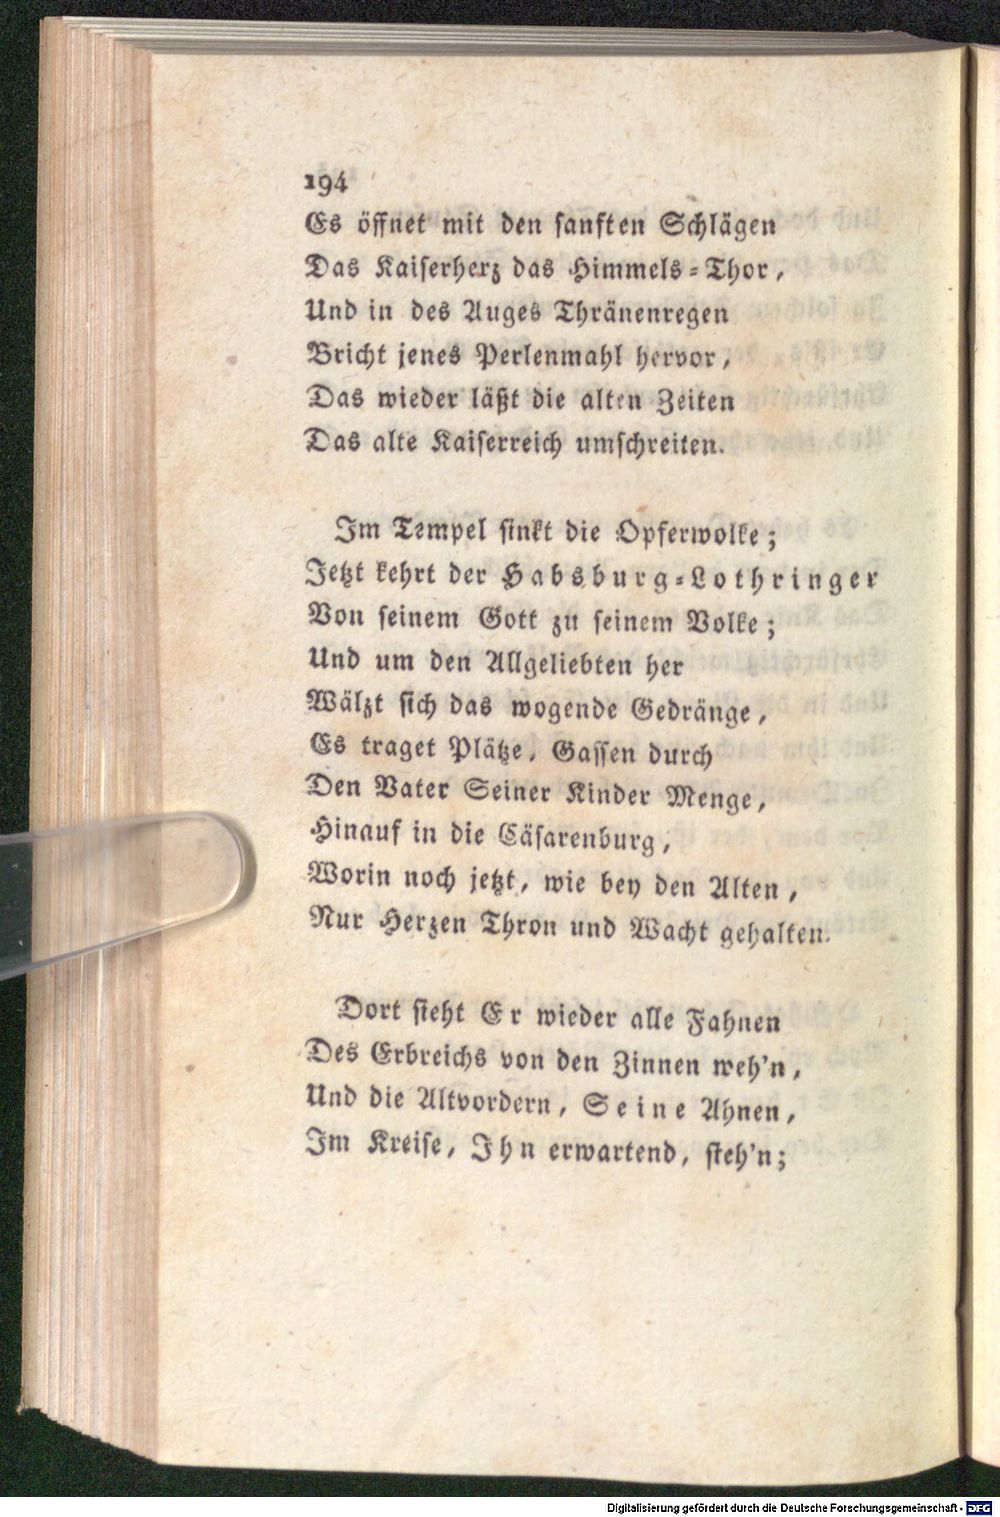 194
Es öffnet mit den sanften Schlägen
Das Kaiserherz das Himmels-Thor,
Und in des Auges Thränenregen
Bricht jenes Perlenmahl hervor,
Das wieder läßt die alten Zeiten
Das alte Kaiserreich umschreiten.
Im Tempel sinkt die Opferwolke;
Jetzt kehrt der Habsburg-Lothringer
Von seinem Gott zu seinem Volke;
Und um den Allgeliebten her
Wälzt sich das wogende Gedränge,
Es traget Plätze, Gassen durch
Den Vater Seiner Kinder Menge,
Hinauf in die Cäsarenburg,
Worin noch jetzt, wie bey den Alten,
Nur Herzen Thron und Wacht gehalten.
Dort sieht Er wieder alle Fahnen
Des Erbreichs von den Zinnen weh'n,
Und die Altvordern, Seine Ahnen,
Im Kreise, Ihn erwartend, steh'n;
Digitalisierung gefördert durch die Deutsche Forschungsgemeinschaft - DFG